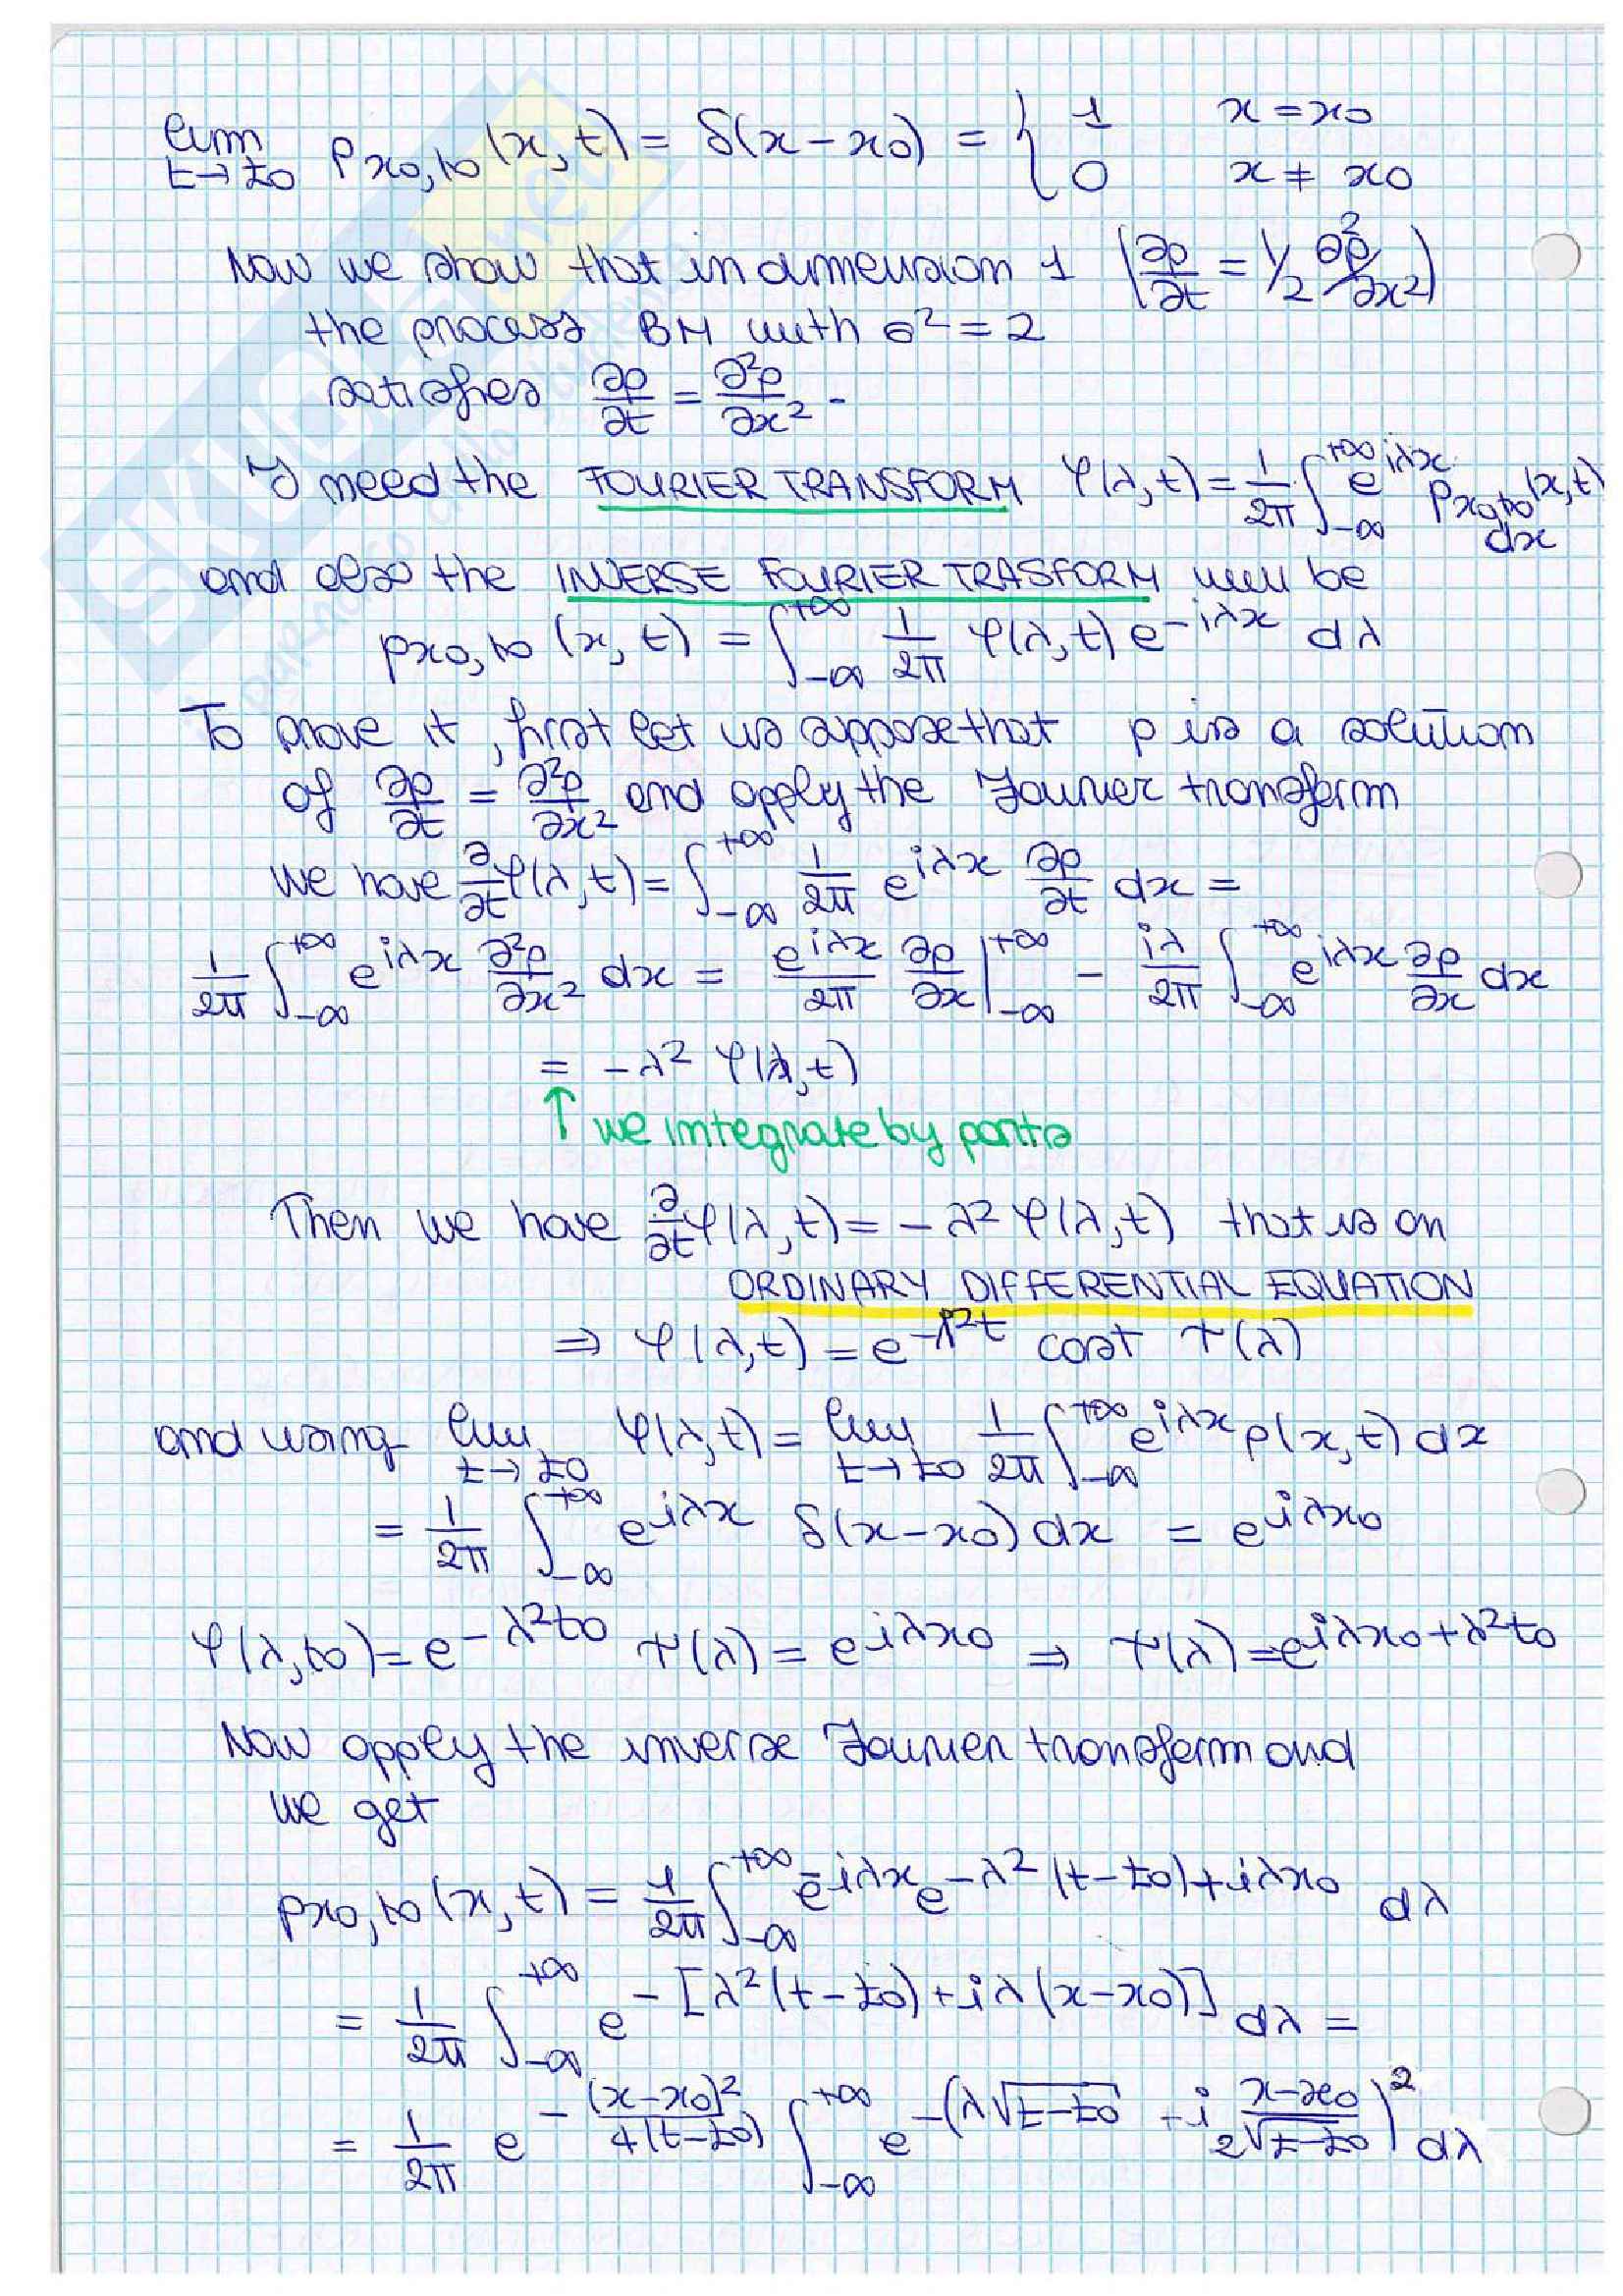 lim t→t0 p x0,t0 (x,t) = δ(x-x0) = { 1 x=x0
0 x≠x0
Now we show that in dimension 1 (∂p/∂t = 1/2 ∂²p/∂x²)
the process BM with σ²=2
satisfies ∂p/∂t = ∂²p/∂x² -
I need the FOURIER TRANSFORM φ(λ,t) = 1/2π ∫_{-∞}^{+∞} e^{iλx} p x0,t0 (x,t) dx
and also the INVERSE FOURIER TRASFORM will be
p x0,t0 (x,t) = ∫_{-∞}^{+∞} 1/2π φ(λ,t) e^{-iλx} dλ
To prove it, first let us suppose that p is a solution
of ∂p/∂t = ∂²p/∂x² and apply the Fourier transform
we have ∂/∂t φ(λ,t) = ∫_{-∞}^{+∞} 1/2π e^{iλx} ∂p/∂t dx =
1/2π ∫_{-∞}^{+∞} e^{iλx} ∂²p/∂x² dx = e^{iλx}/2π ∂p/∂x |_{-∞}^{+∞} - iλ/2π ∫_{-∞}^{+∞} e^{iλx} ∂p/∂x dx
= -λ² φ(λ,t)
↑ we integrate by parts
Then we have ∂/∂t φ(λ,t) = -λ² φ(λ,t) that is an
ORDINARY DIFFERENTIAL EQUATION
⇒ φ(λ,t) = e^{-λ²t} cost ψ(λ)
and using lim t→t0 φ(λ,t) = lim t→t0 1/2π ∫_{-∞}^{+∞} e^{iλx} p(x,t) dx
= 1/2π ∫_{-∞}^{+∞} e^{iλx} δ(x-x0) dx = e^{iλx0}
φ(λ,t0) = e^{-λ²t0} ψ(λ) = e^{iλx0} ⇒ ψ(λ) = e^{iλx0+λ²t0}
Now apply the inverse Fourier transform and
we get
p x0,t0 (x,t) = 1/2π ∫_{-∞}^{+∞} e^{-iλx} e^{-λ²(t-t0)+iλx0} dλ
= 1/2π ∫_{-∞}^{+∞} e^{-[λ²(t-t0)+iλ(x-x0)]} dλ =
= 1/2π e^{-(x-x0)²/4(t-t0)} ∫_{-∞}^{+∞} e^{-(λ√(t-t0) + i (x-x0)/2√(t-t0))²} dλ